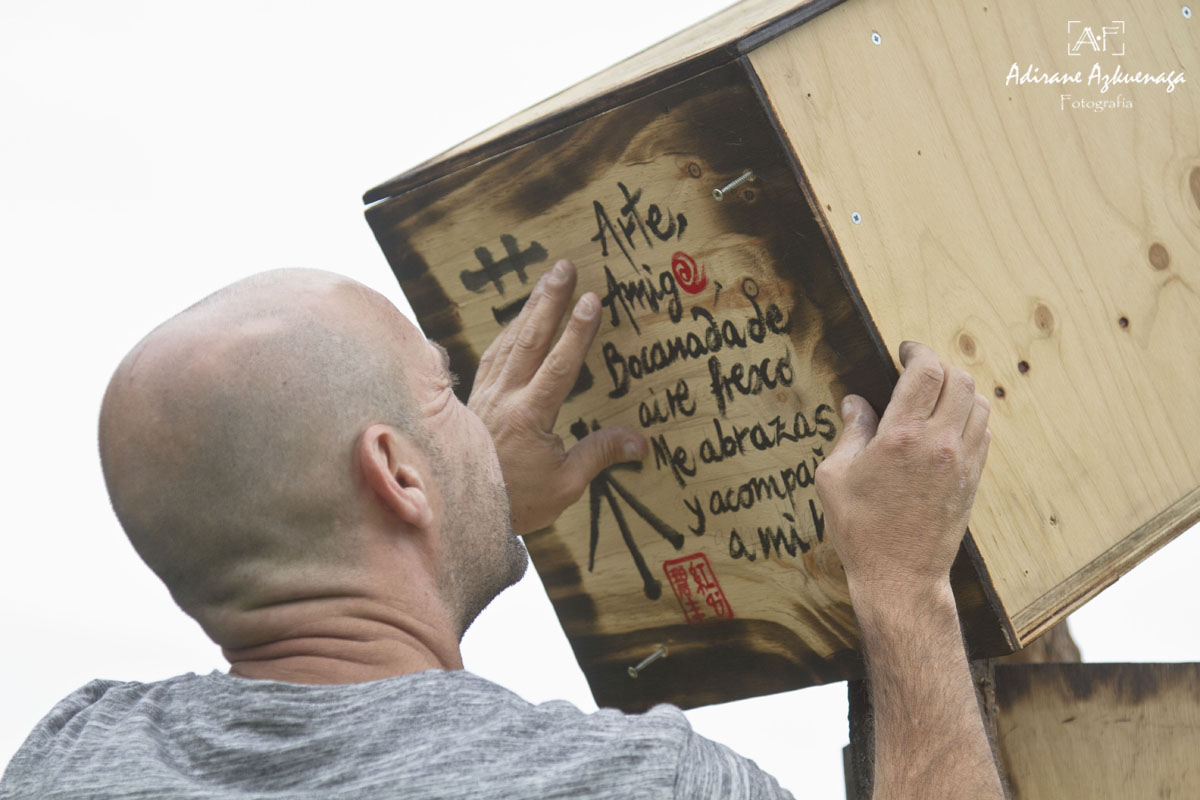 A.F
Adirane Azkuenaga
Fotografia
Arte,
Amig@,
Bocanada de
aire fresco
Me abrazas
y acompañ
a mi